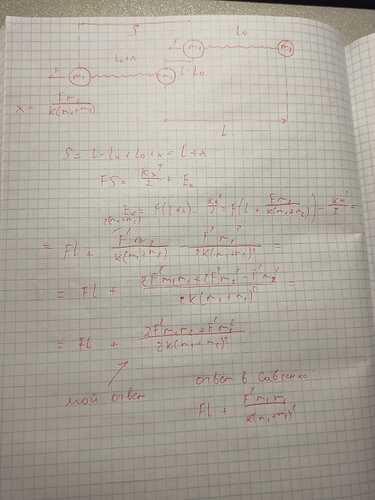 S
l₀
F m₁ m₂
l₀+x
F m₁ m₂ l-l₀
x = Fm₂/k(m₁+m₂)
L
S = L - l₀ + l₀ + x = L + x
FS = kx²/2 + Eₖ
Eₖ = F(L+x) - kx²/2 = F(L + Fm₂/k(m₁+m₂)) - kx²/2 =
= FL + F²m₂/k(m₁+m₂) - F²m₂²/2k(m₁+m₂)² =
= FL + (2F²m₁m₂ + 2F²m₂² - F²m₂²)/2k(m₁+m₂)² =
= FL + (2F²m₁m₂ + F²m₂²)/2k(m₁+m₂)²
мой ответ
ответ в Савченко
FL + F²m₁m₂/k(m₁+m₂)²